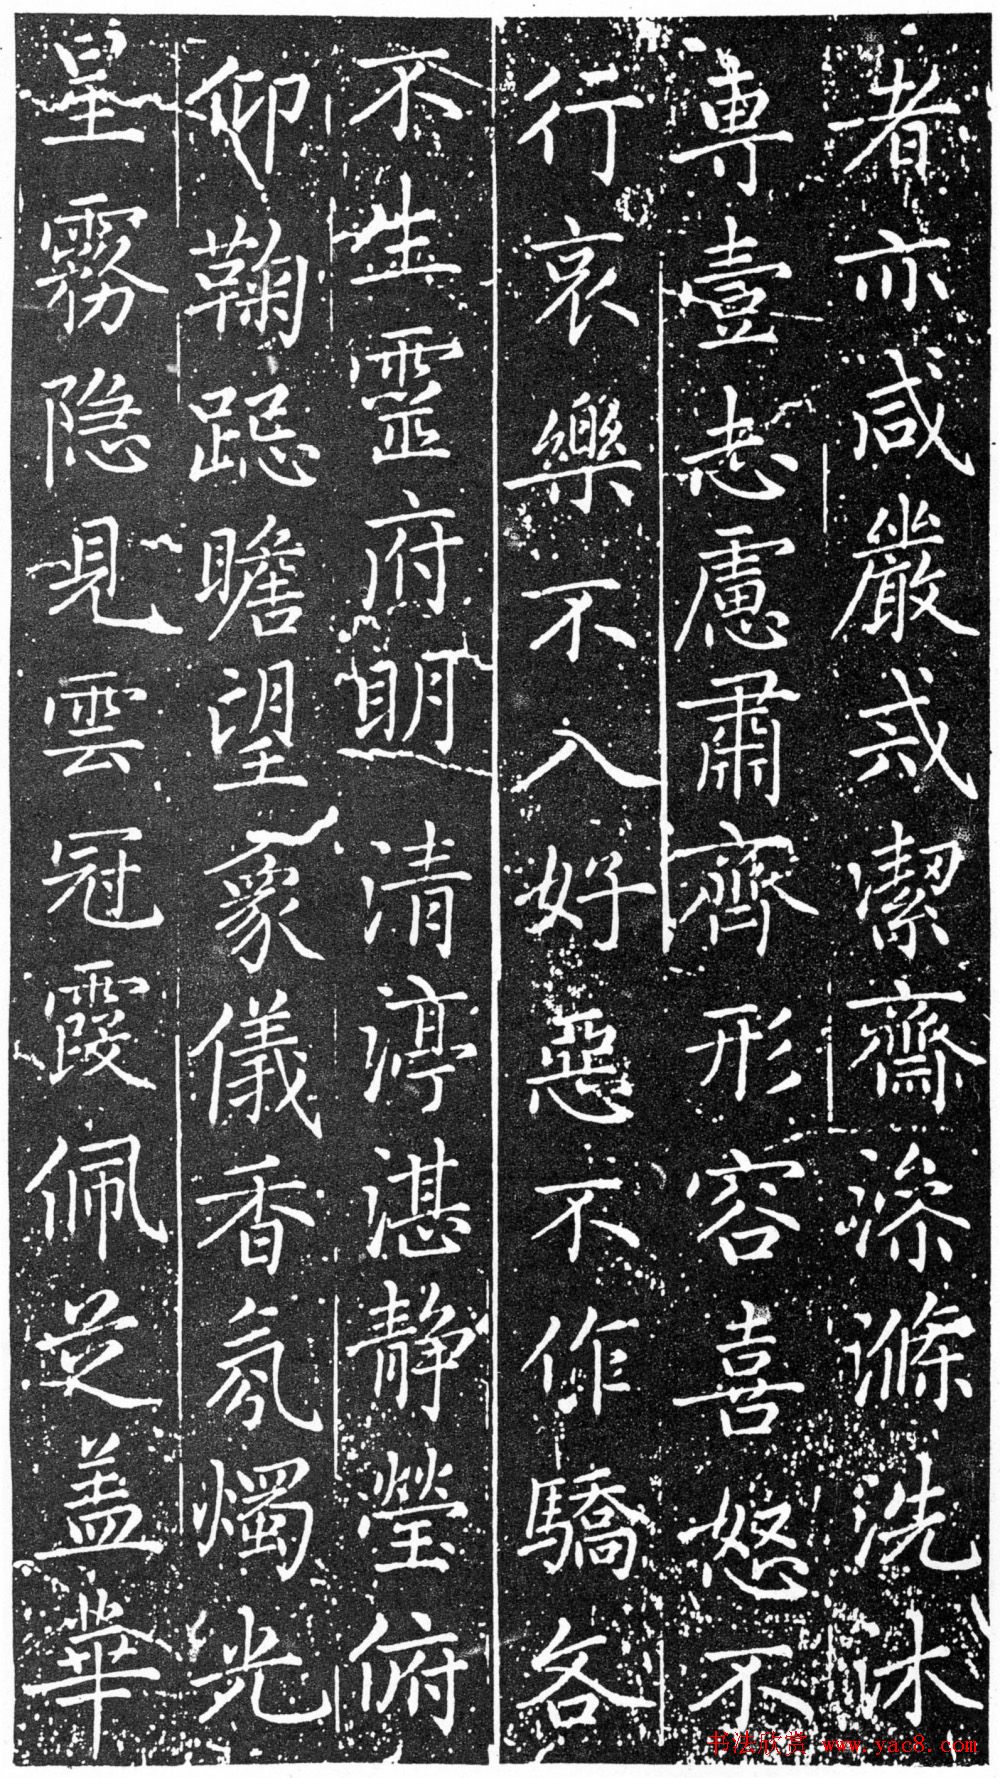 者亦咸嚴戒潔齋澡滌洗沐
專壹志慮肅齊形容喜怒不
行哀樂不入好惡不作驕吝
不生靈府明清渟湛静瑩俯
仰鞠跽瞻望象儀香氛燭光
星霧隐見雲冠霞佩芝盖華
书法欣赏 www.yac8.com